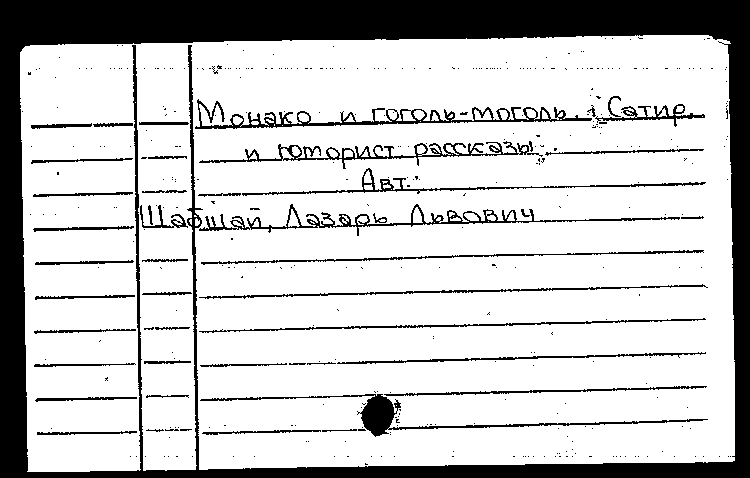 Монако и гоголь-моголь : Сатир.
и юморист. рассказы.
Авт.:
Шабшай, Лазарь Львович